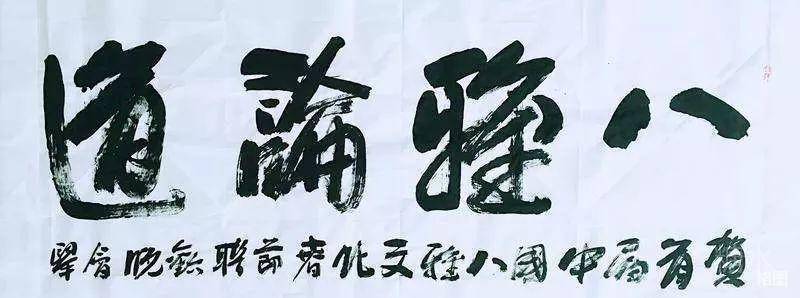 八雅論道
賀首届中國八雅文化春節聯歡晚會舉